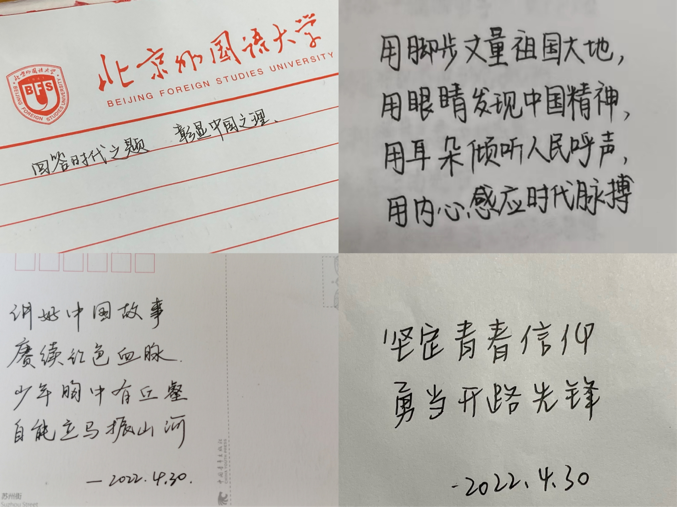 北京外国语大学
BEIJING FOREIGN STUDIES UNIVERSITY
BFS
回答时代之题 彰显中国之理、
用脚步丈量祖国大地，
用眼睛发现中国精神，
用耳朵倾听人民呼声，
用内心感应时代脉搏
讲好中国故事
赓续红色血脉
少年胸中有丘壑
自能立马振山河
—2022.4.30.
中国青年出版社
苏州街
Suzhou Street
坚定青春信仰
勇当开路先锋
-2022.4.30